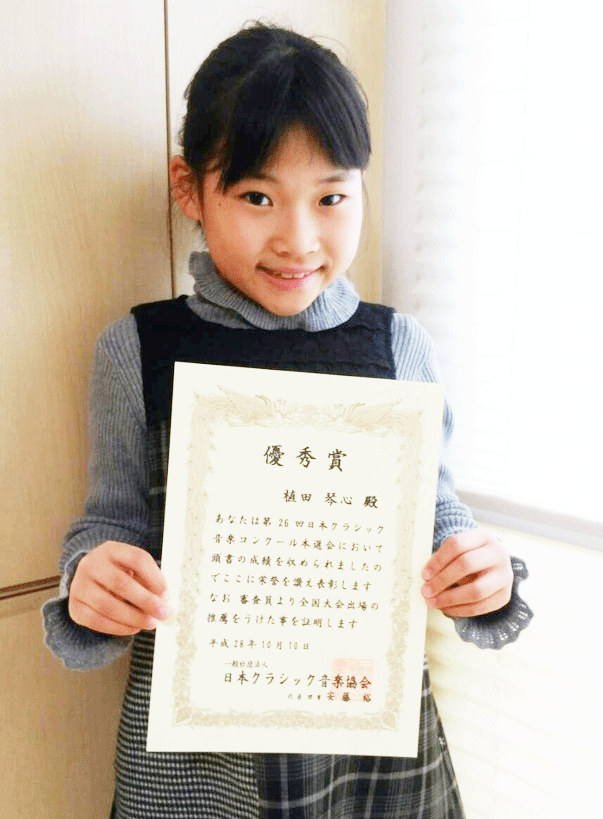 優秀賞
植田 琴心 殿
あなたは第26回日本クラシック
音楽コンクール本選会において
頭書の成績を収められましたの
でここに栄誉を讃え表彰します
なお 審査員より全国大会出場の
推薦をうけた事を証明します
平成28年10月10日
一般社団法人
日本クラシック音楽協会
代表理事 安藤 裕